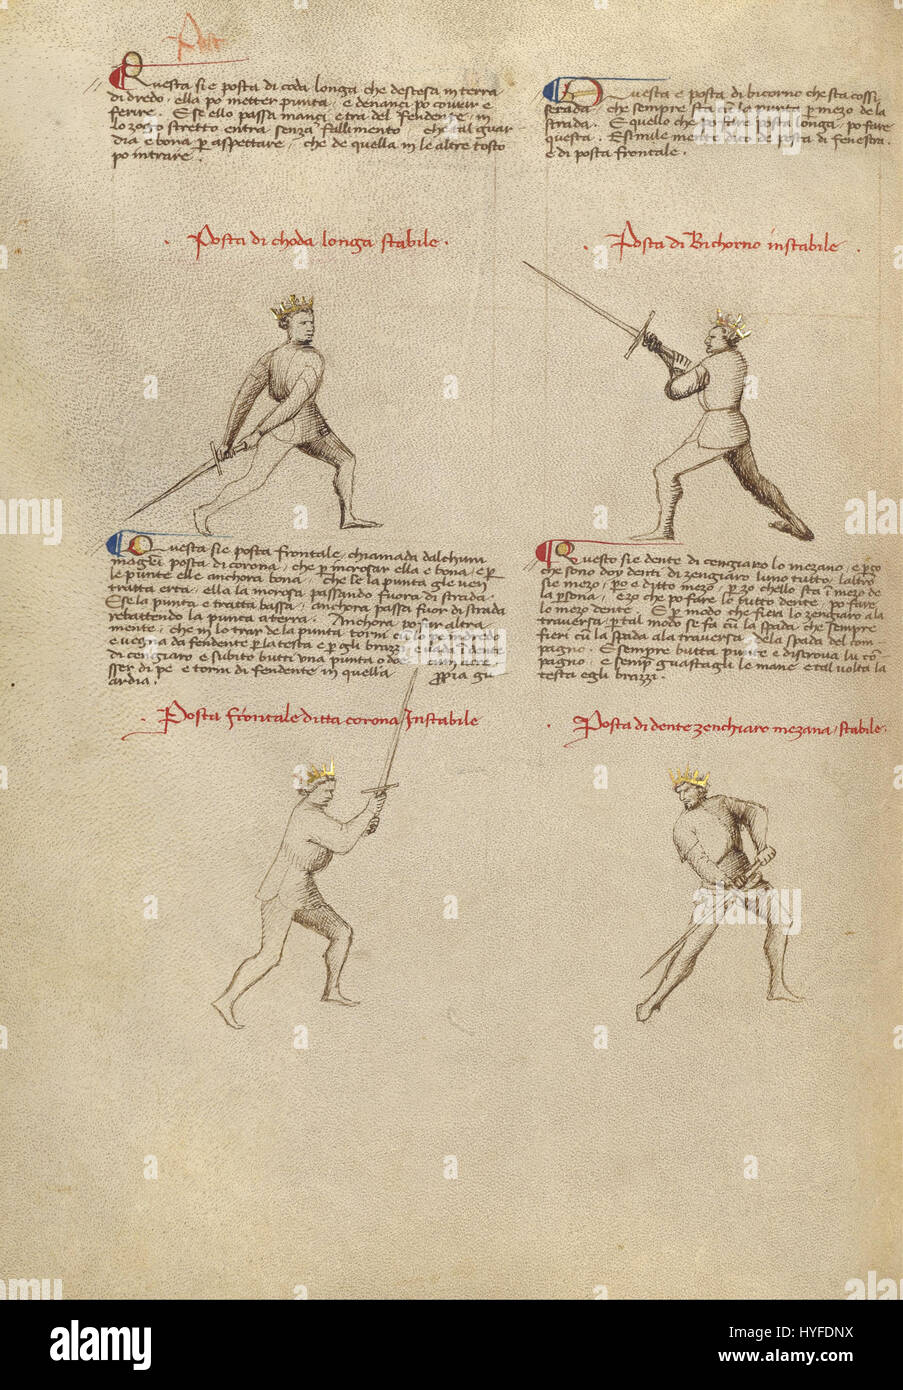 Questa sie posta di coda longa che destesa in terra
di dredo, ella po metter punta, e denanci po covrir e
ferire. E se ello passa inanci e tra del fendente, in
lo zogo stretto entra senza fallimento che tal guar
dia e bona per aspettare, che de quella in le altre tosto
po intrare.
Posta di choda longa stabile.
Questa e posta di bicorno che sta cossi
serada che sempre sta cum la punta per mezo de la
strada. E quello che po fare posta longa, po fare
questa. E simile mente dico de posta di fenestra.
e di posta frontale.
Posta di Bichorno instabile.
Questa sie posta frontale, chiamada d'alchuni
magistri posta di corona, che per incrosar ella e bona, e per
le punte ell'e anchora bona, che se la punta gle ven
tratta erta, ella la incrosa passando fuora di strada.
E se la punta e tratta bassa, anchora passa fuor di strada
rebattendo la punta a terra. Anchora po far altra
mente, che in lo trar de la punta torni cum lo pe indredo
e vegna da fendente per la testa e per gli brazzi e vada in dente
di cengiaro e subito butti una punta o doe cum acre
sser di pe e torni di fendente in quella propria gu
ardia.
Posta frontale ditta corona Instabile
Questo sie dente di cengiaro lo mezano, e perço
che sono doy denti di zengiaro l'uno tutto, l'altro
sie mezo, pero e ditto mezo, per zo ch'ello sta in mezo de
la persona, e zo che po fare lo tutto dente, po fare
lo mezo dente. E per modo che fieri lo zengiaro a la
traversa, per tal modo se fa cum la spada che sempre
fieri cum la spada a la traversa de la spada del com
pagno. E sempre butta punte e discrova lu com
pagno, e semper guastagli le mane e tal volta la
testa e gli brazzi.
Posta di dente zenchiaro mezana, stabile.
alamy
alamy
alamy
alamy
Image ID: HYFDNX
www.alamy.com